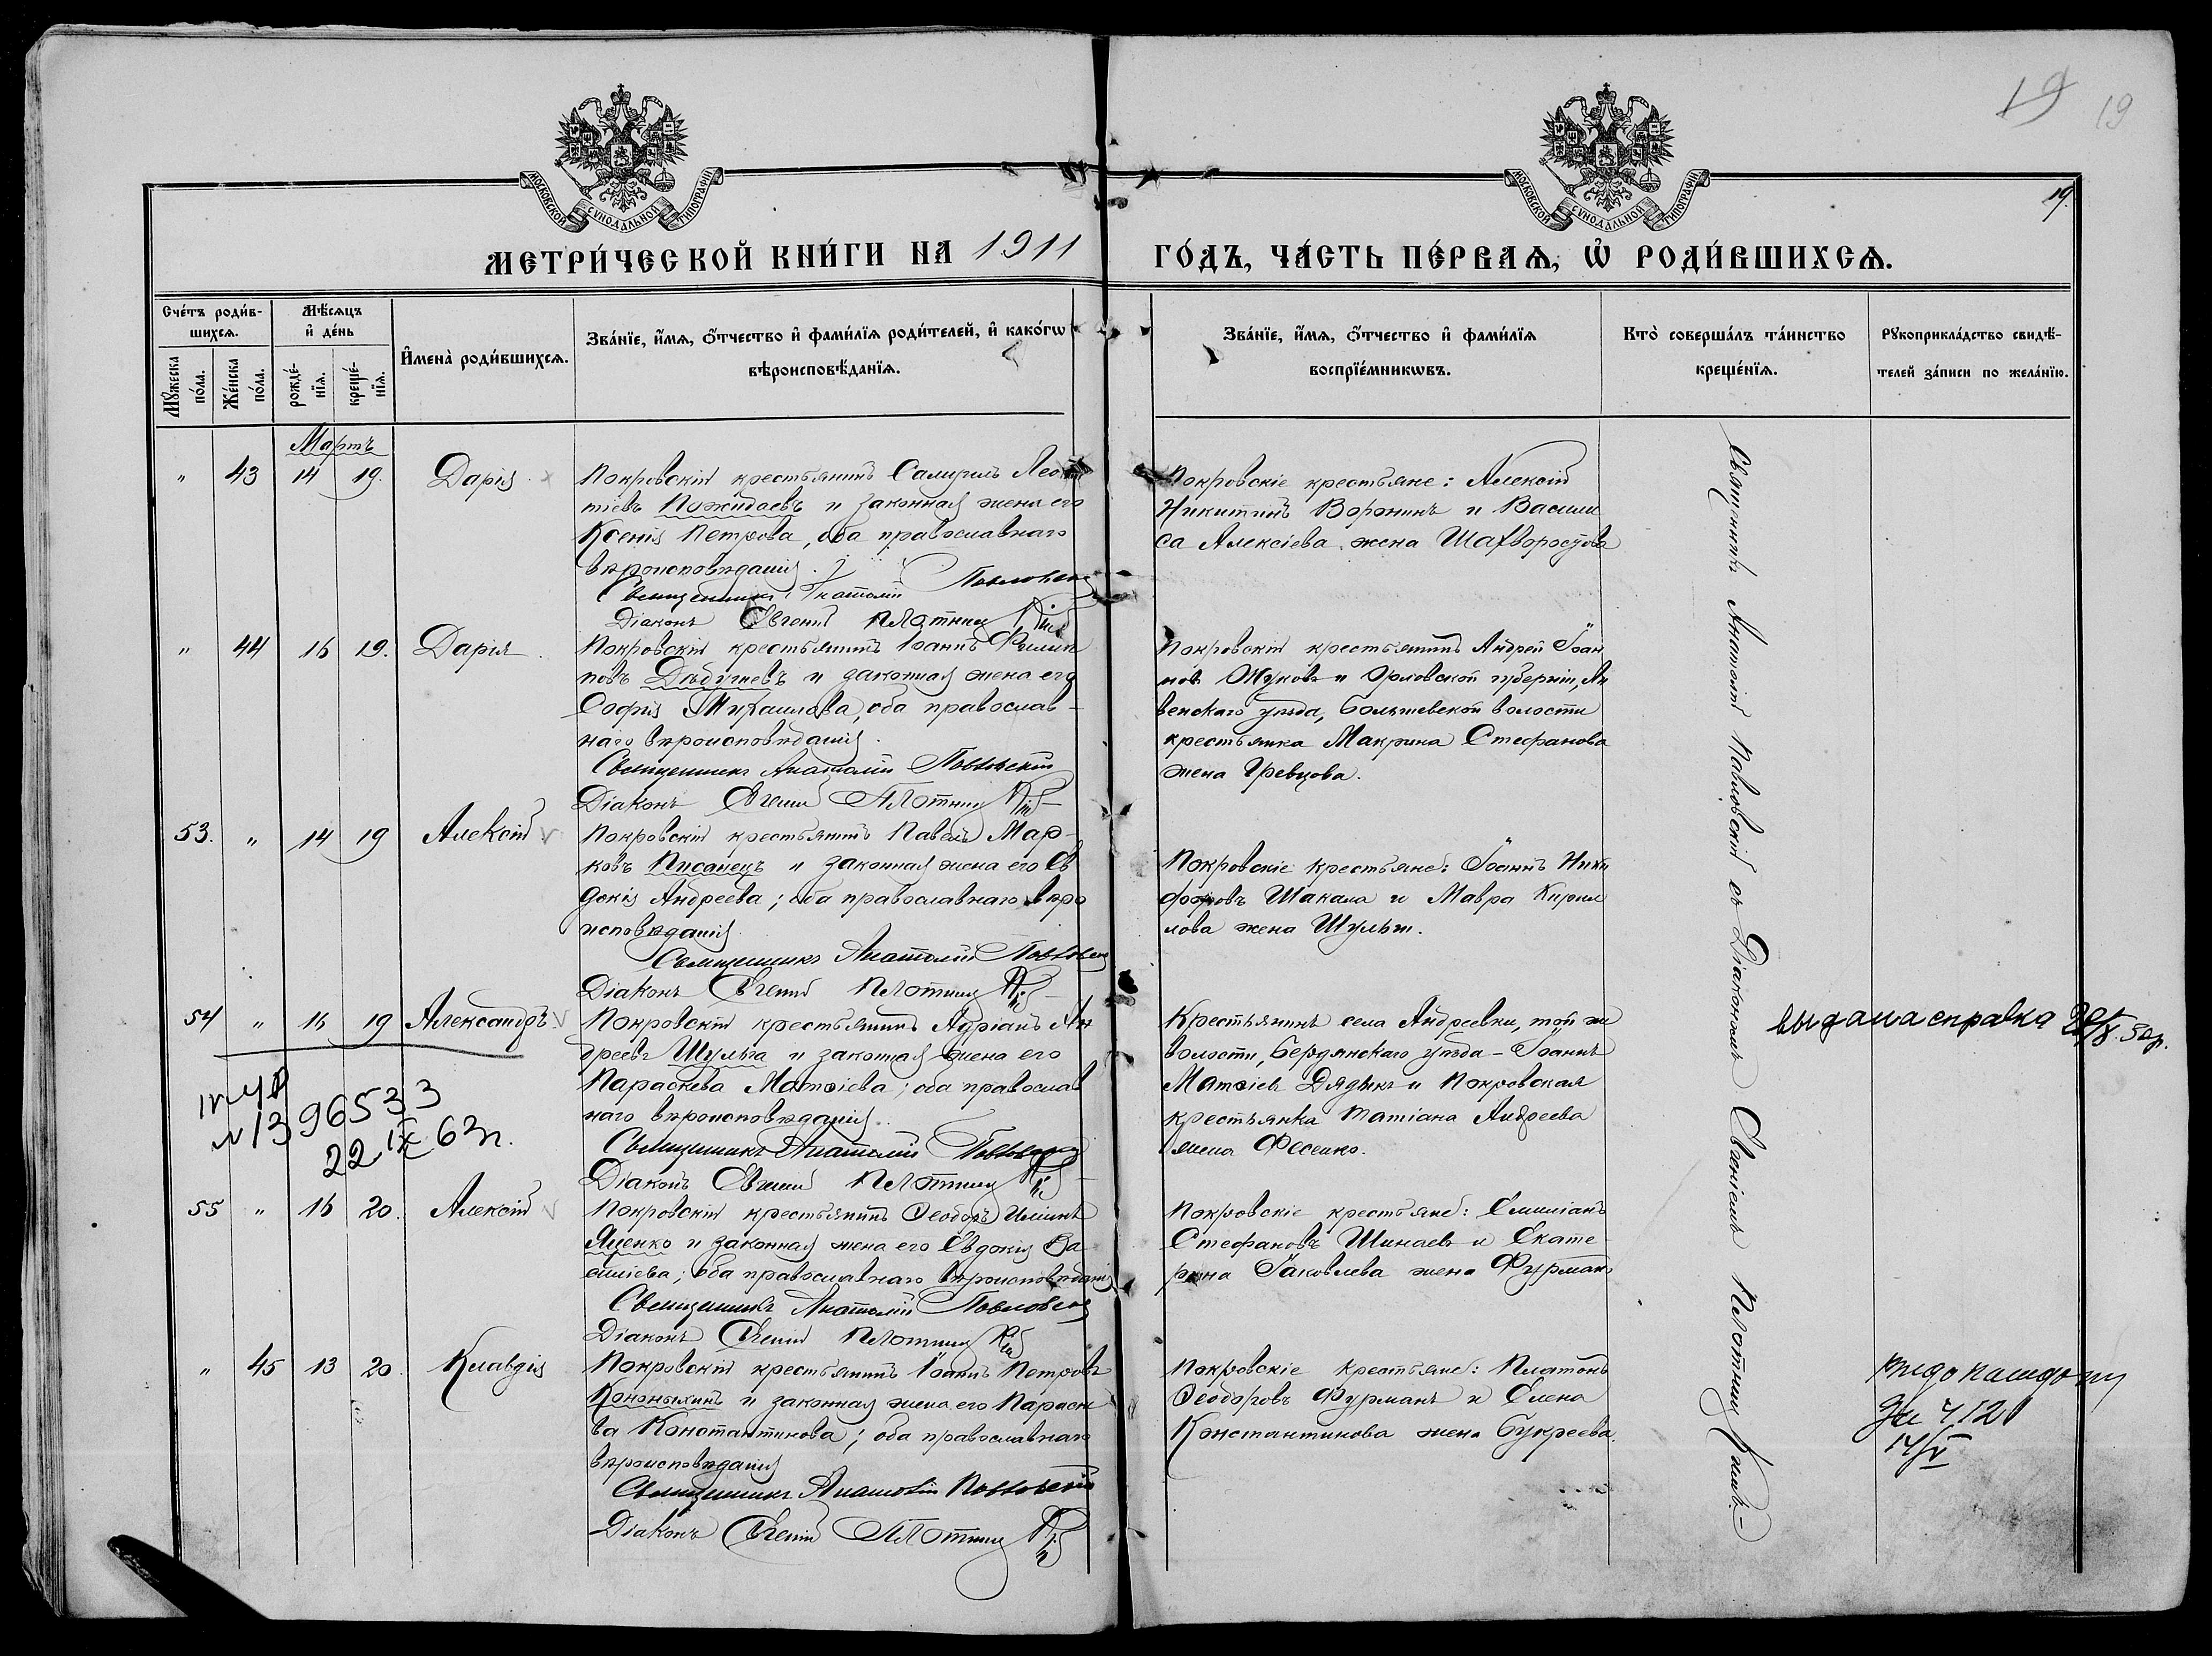 19 19
МОСКОВСКОЙ СѴНОДАЛЬНОЙ ТИПОГРАФІИ
МОСКОВСКОЙ СѴНОДАЛЬНОЙ ТИПОГРАФІИ
19.
МЕТРИ́ЧЕСКОЙ КНИ́ГИ НА 1911
ГО́ДЪ, ЧА́СТЬ ПЕ́РВАѦ, Ѡ҆ РОДИ́ВШИХСѦ.
Сче́тъ роди́в-
шихсѧ.
Мꙋ́жеска
по́ла.
Же́нска
по́ла.
Мѣ́сѧцъ
и҆ де́нь
рожде́-
нїѧ.
креще́-
нїѧ.
И҆мена̀ роди́вшихсѧ.
Зва́нїе, и҆́мѧ, ѻ҆́тчество и҆ фами́лїѧ роди́телей, и҆ како́гѡ
вѣроисповѣ́данїѧ.
Зва́нїе, и҆́мѧ, ѻ҆́тчество и҆ фами́лїѧ
воспрїе́мникѡвъ.
Кто̀ соверша́лъ та́инство
креще́нїѧ.
Рꙋкоприкла́дство свидѣ́-
телей за́писи по жела́нїю.
Мартъ
" 43 14 19. Дарія
Покровскій крестьянинъ Самуилъ Леон
тіевъ Пожидаевъ и законная жена его
Ксенія Петрова, оба православнаго
вѣроисповѣданія.
Священникъ Анатолій Павловскій
Діаконъ Евгеній Плотниц
Покровскіе крестьяне: Алексій
Никитинъ Воронинъ и Васили
са Алексіева жена Шахворостова
" 44 16 19. Дарія
Покровскій крестьянинъ Іоаннъ Филип
повъ Дѣдушевъ и законная жена его
Софія Михаилова, оба православ-
наго вѣроисповѣданія.
Священникъ Анатолій Павловскій
Діаконъ Евгеній Плотниц
Покровскій крестьянинъ Андрей Іоан
новъ Жуковъ и Орловской губерніи, Ли
венскаго уѣзда, волости
крестьянка Макрина Стефанова
жена Гревцова.
53. " 14 19 Алексій
Покровскій крестьянинъ Павелъ Мар-
ковъ Писанецъ и законная жена его Ев
докія Андреева; оба православнаго вѣро
исповѣданія
Священникъ Анатолій Павловскій
Діаконъ Евгеній Плотниц
Покровскіе крестьяне: Іоаннъ Ники
форовъ Шакала и Мавра Кирил
лова жена Шульги.
54 " 16 19 Александръ
Покровскій крестьянинъ Адріанъ Ан
дреевъ Шульга и законная жена его
Параскева Матѳіева; оба православ
наго вѣроисповѣданія.
Священникъ Анатолій Павловскій
Діаконъ Евгеній Плотниц
Крестьянинъ села Андреевки, той же
волости, Бердянскаго уѣзда - Іоаннъ
Матѳіевъ Дядыкъ и Покровская
крестьянка Татіана Андреева
жена Фесенко.
выдана справка 50г.
№ 1396533
22 IX 63г.
55 " 16 20. Алексій
Покровскій крестьянинъ Ѳеодоръ Иліинъ
Яценко и законная жена его Евдокія Ва
силіева; оба православнаго вѣроисповѣданія
Священникъ Анатолій Павловскій
Діаконъ Евгеній Плотниц
Покровскіе крестьяне: Емиліанъ
Стефановъ Шинаевъ и Екате
рина Іаковлева жена Фурманъ
" 45 13 20. Клавдія
Покровскій крестьянинъ Іоаннъ Петровъ
Кононыхинъ и законная жена его Параске
ва Константинова; оба православнаго
вѣроисповѣданія
Священникъ Анатолій Павловскій
Діаконъ Евгеній Плотниц
Покровскіе крестьяне: Платонъ
Ѳеодоровъ Фурманъ и Елена
Константинова жена Букреева.
14/V
Священникъ Анатолій Павловскій съ Діакономъ Евгеніемъ Плотниц